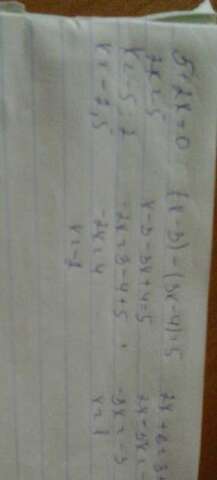 5+2x=0
2x=5
x=-5:2
x=-2,5
(x-3)-(3x-4)=5
x-3-3x+4=5
-2x=3-4+5
-2x=4
x=-2
2x+6=3+
2x-5x=-
-3x=-3
x=1